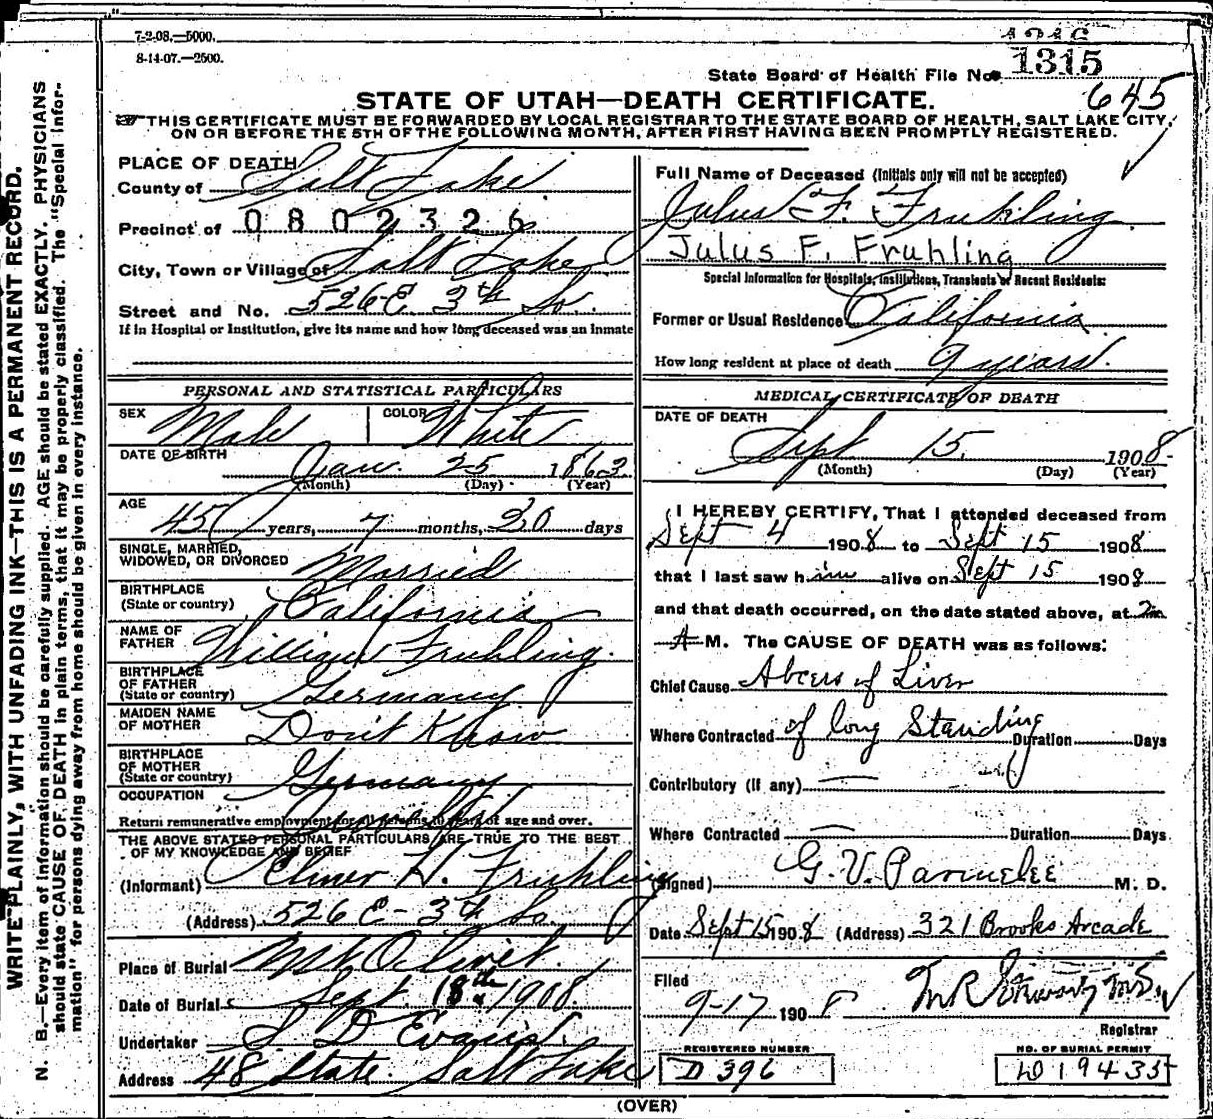 7-2-08.—5000.
8-14-07.—2500.
1315
State Board of Health File No.
645
STATE OF UTAH—DEATH CERTIFICATE.
THIS CERTIFICATE MUST BE FORWARDED BY LOCAL REGISTRAR TO THE STATE BOARD OF HEALTH, SALT LAKE CITY,
ON OR BEFORE THE 5TH OF THE FOLLOWING MONTH, AFTER FIRST HAVING BEEN PROMPTLY REGISTERED.
WRITE PLAINLY, WITH UNFADING INK—THIS IS A PERMANENT RECORD.
N. B.—Every item of information should be carefully supplied. AGE should be stated EXACTLY. PHYSICIANS
should state CAUSE OF DEATH in plain terms, that it may be properly classified. The "Special Infor-
mation" for persons dying away from home should be given in every instance.
PLACE OF DEATH
County of Salt Lake
Precinct of 0802326
City, Town or Village of Salt Lake
Street and No. 526 E 3th So.
If in Hospital or Institution, give its name and how long deceased was an inmate
PERSONAL AND STATISTICAL PARTICULARS
SEX Male COLOR White
DATE OF BIRTH
Jan. 25 1863
(Month) (Day) (Year)
AGE
45 years, 7 months, 20 days
SINGLE, MARRIED,
WIDOWED, OR DIVORCED Married
BIRTHPLACE
(State or country) California
NAME OF
FATHER William Fruhling.
BIRTHPLACE
OF FATHER
(State or country) Germany
MAIDEN NAME
OF MOTHER Don't Know
BIRTHPLACE
OF MOTHER
(State or country) Germany
OCCUPATION
Return remunerative employment for all persons 10 years of age and over.
THE ABOVE STATED PERSONAL PARTICULARS ARE TRUE TO THE BEST
OF MY KNOWLEDGE AND BELIEF
(Informant) Elmer H. Fruhling
(Address) 526 E- 3th So.
Place of Burial Mt Olivet.
Date of Burial Sept. 18th 1908.
Undertaker S D Evans.
Address 48 State. Salt Lake
Full Name of Deceased (Initials only will not be accepted)
Julus F. Fruhling
Julus F. Fruhling
Special Information for Hospitals, Institutions, Transients or Recent Residents:
Former or Usual Residence California
How long resident at place of death 9 years.
MEDICAL CERTIFICATE OF DEATH
DATE OF DEATH
Sept 15. 1908
(Month) (Day) (Year)
I HEREBY CERTIFY, That I attended deceased from
Sept 4 1908 to Sept 15 1908
that I last saw him alive on Sept 15 1908
and that death occurred, on the date stated above, at
A M. The CAUSE OF DEATH was as follows:
Chief Cause Abcess of Liver
Where Contracted of long Standing Duration Days
Contributory (if any)
Where Contracted Duration Days
(Signed) G. V. Parmelee M. D.
Date Sept 15 1908 (Address) 321 Brooks Arcade
Filed
9-17 1908
Registrar
REGISTERED NUMBER
D 396
NO. OF BURIAL PERMIT
D 19435
(OVER)